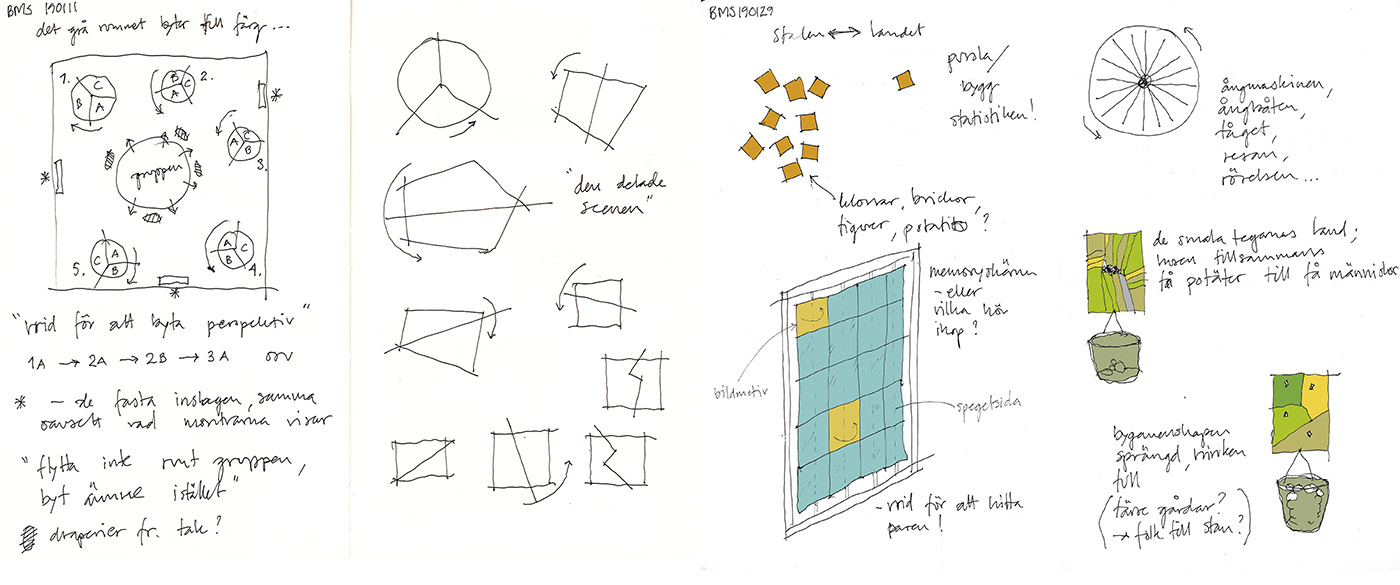 BMS 190111
det grå rummet byter till färg...
1.
A
B
C
2.
A
B
C
3.
A
B
C
4.
A
B
C
5.
A
B
C
gruppen
*
*
*
"vrid för att byta perspektiv"
1A → 2A → 2B → 3A osv
* - de fasta inslagen, samma
oavsett vad montrarna visar
"flytta inte runt gruppen,
byt ämne istället"
draperier fr. tak?
"den delade
scenen"
BMS 190129
staden ↔ landet
pussla/
bygg
statistiken!
klossar, brickor,
figurer, potatis?
memoryskärm
- eller
vilka hör
ihop?
bildmotiv
spegelsida
- vrid för att hitta
paren!
ångmaskinen,
ångbåten,
tåget,
resan,
rörelsen...
de smala tegarnas land;
husen tillsammans
få potäter till få människor
bygemenskapen
sprängd, hinken
full
(färre gårdar?
→ folk till stan?)